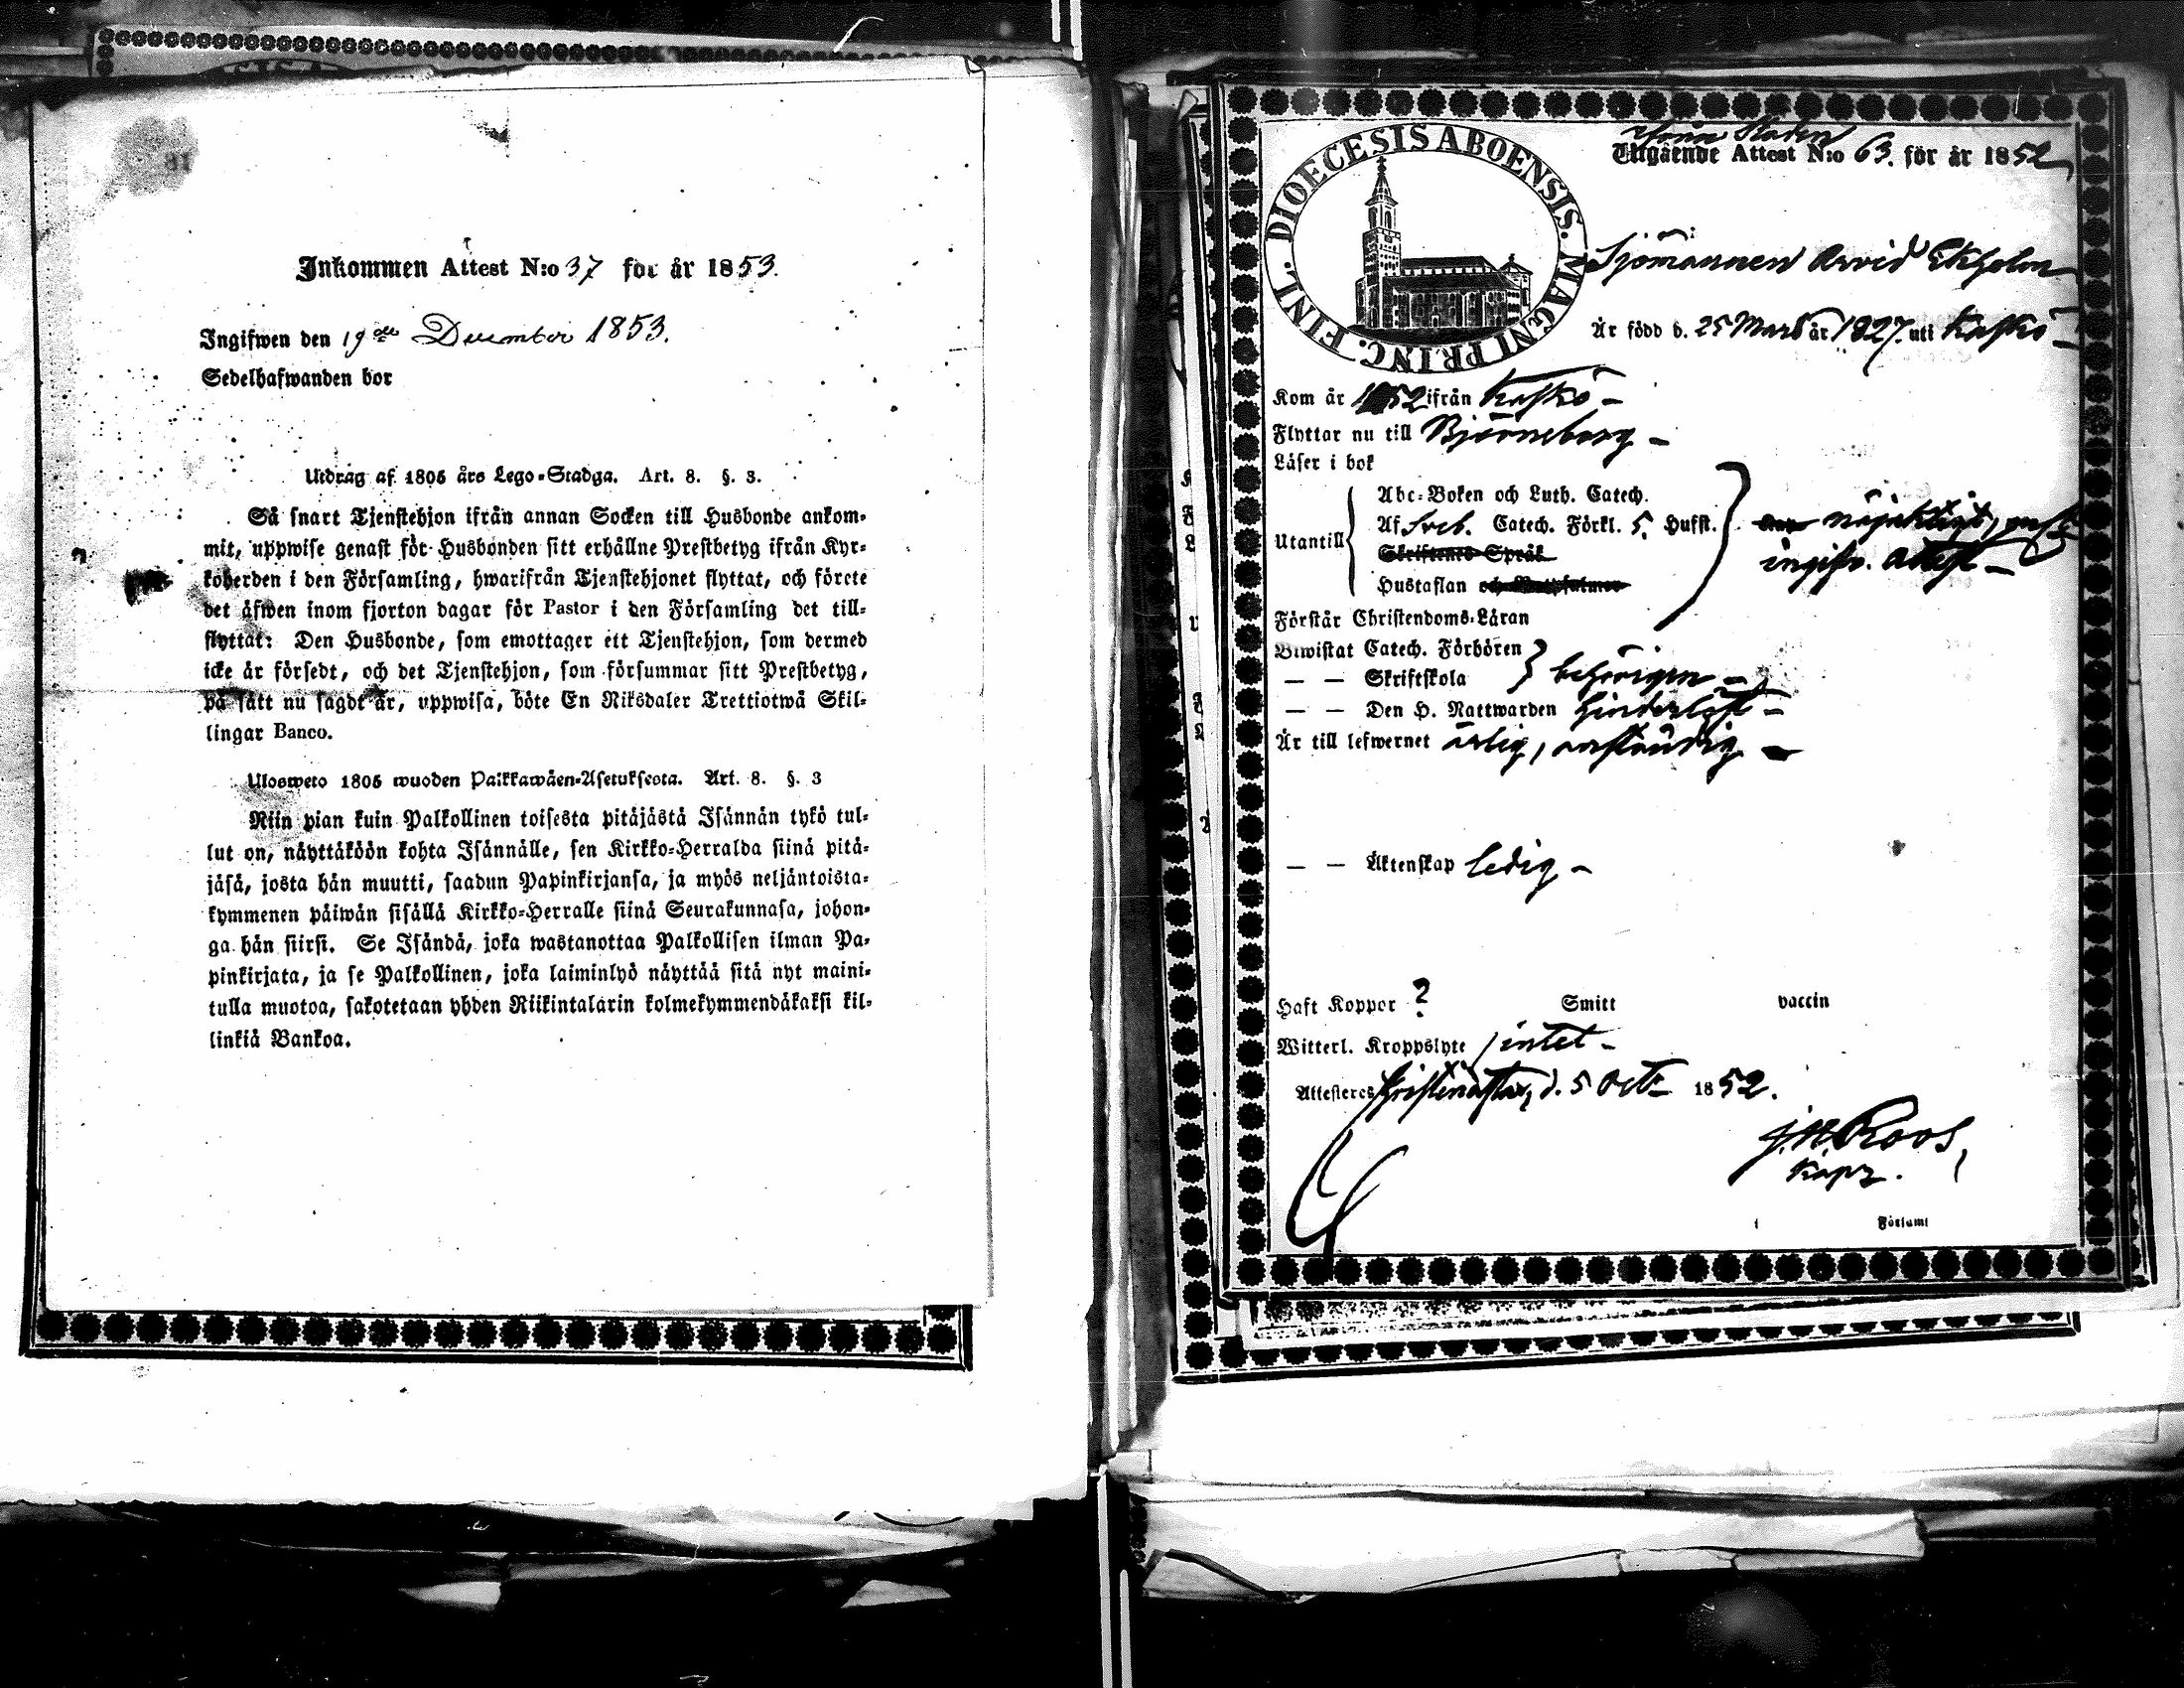 Inkommen Attest N:o 37 för år 1853.
Ingifwen den 19de December 1853.
Sedelhafwanden bor
Utdrag af 1805 års Lego-Stadga. Art. 8. §. 3.
Så snart Tjenstehjon ifrån annan Socken till Husbonde ankom-
mit, uppwise genast för Husbonden sitt erhållne Prestbetyg ifrån Kyr-
koherden i den Församling, hwarifrån Tjenstehjonet flyttat, och förete
det äfwen inom fjorton dagar för Pastor i den Församling det till-
flyttat: Den Husbonde, som emottager ett Tjenstehjon, som dermed
icke är försedt, och det Tjenstehjon, som försummar sitt Prestbetyg,
på sätt nu sagdt är, uppwisa, böte En Riksdaler Trettiotwå Skil-
lingar Banco.
Ulosweto 1805 wuoden Palkkawäen-Asetuksesta. Art. 8. §. 3
Niin pian kuin Palkollinen toisesta pitäjästä Isännän tykö tul-
lut on, näyttäköön kohta Isännälle, sen Kirkko-Herralda siinä pitä-
jäsä, josta hän muutti, saadun Papinkirjansa, ja myös neljäntoista-
kymmenen päiwän sisällä Kirkko-Herralle siinä Seurakunnasa, johon-
ga hän siirsi. Se Isändä, joka wastanottaa Palkollisen ilman Pa-
pinkirjata, ja se Palkollinen, joka laiminlyö näyttää sitä nyt maini-
tulla muotoa, sakotetaan yhden Riikintalarin kolmekymmendäkaksi kil-
linkiä Bankoa.
DIOECESIS ABOENSIS. MAGNI PRINC. FINL.
Staden
Utgående Attest N:o 63. för år 1852
Sjömannen Arvid Ekholm
Är född d. 25 Mars år 1827. uti Kaskö
Kom år 1852 ifrån Kaskö
Flyttar nu till Björneborg
Läser i bok
Utantill
Abc-Boken och Luth. Catech.
Af Sveb. Catech. Förkl. 5. Hufst.
Skriftenes Språk
Hustaflan och
nöjaktigt,
ingifv. attest
Förstår Christendoms-Läran
Biwistat Catech. Förhören
— — Skriftskola
behörigen
— — Den H. Nattwarden hinderlöst
Är till lefwernet ärlig, anständig
— — Äktenskap ledig
Haft Koppor ? Smitt vaccin
Witterl. Kroppslyte intet
Attesteres Kristinestad, d. 5 Oct. 1852.
J.H. Roos,
Kapz.
i Församl